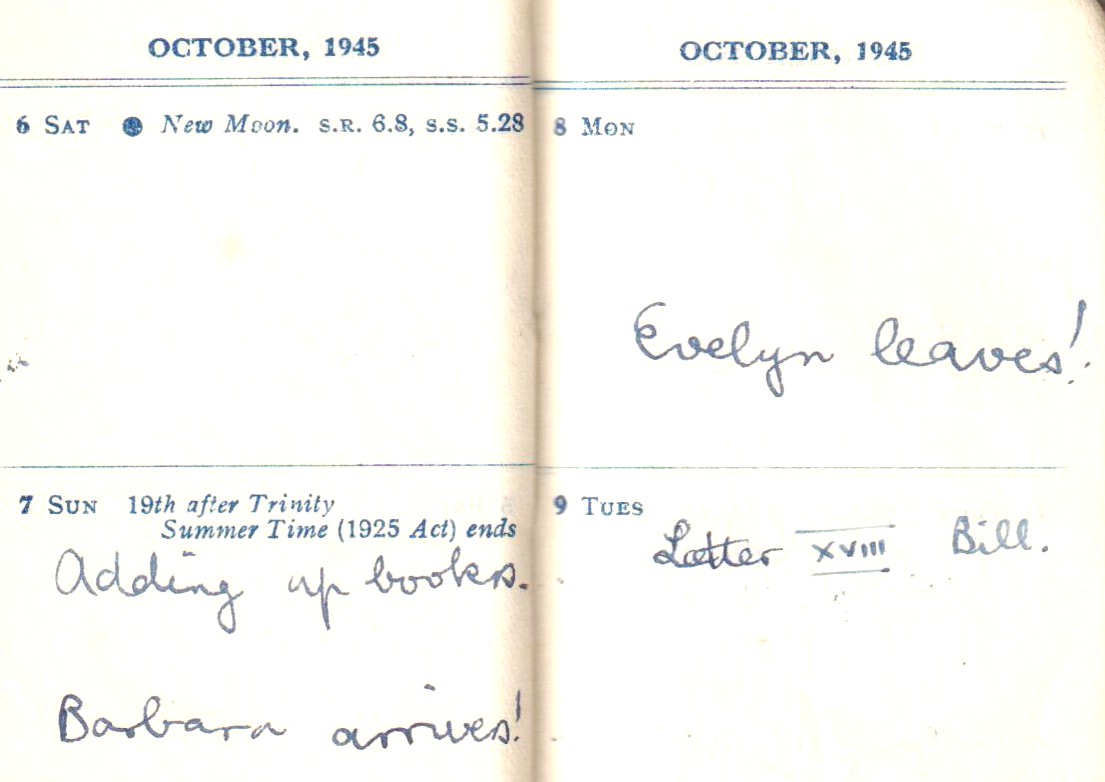 OCTOBER, 1945
6 SAT New Moon. S.R. 6.8, S.S. 5.28
7 SUN 19th after Trinity
Summer Time (1925 Act) ends
Adding up books.
Barbara arrives!
OCTOBER, 1945
8 MON
Evelyn leaves!
9 TUES
Letter XVIII Bill.